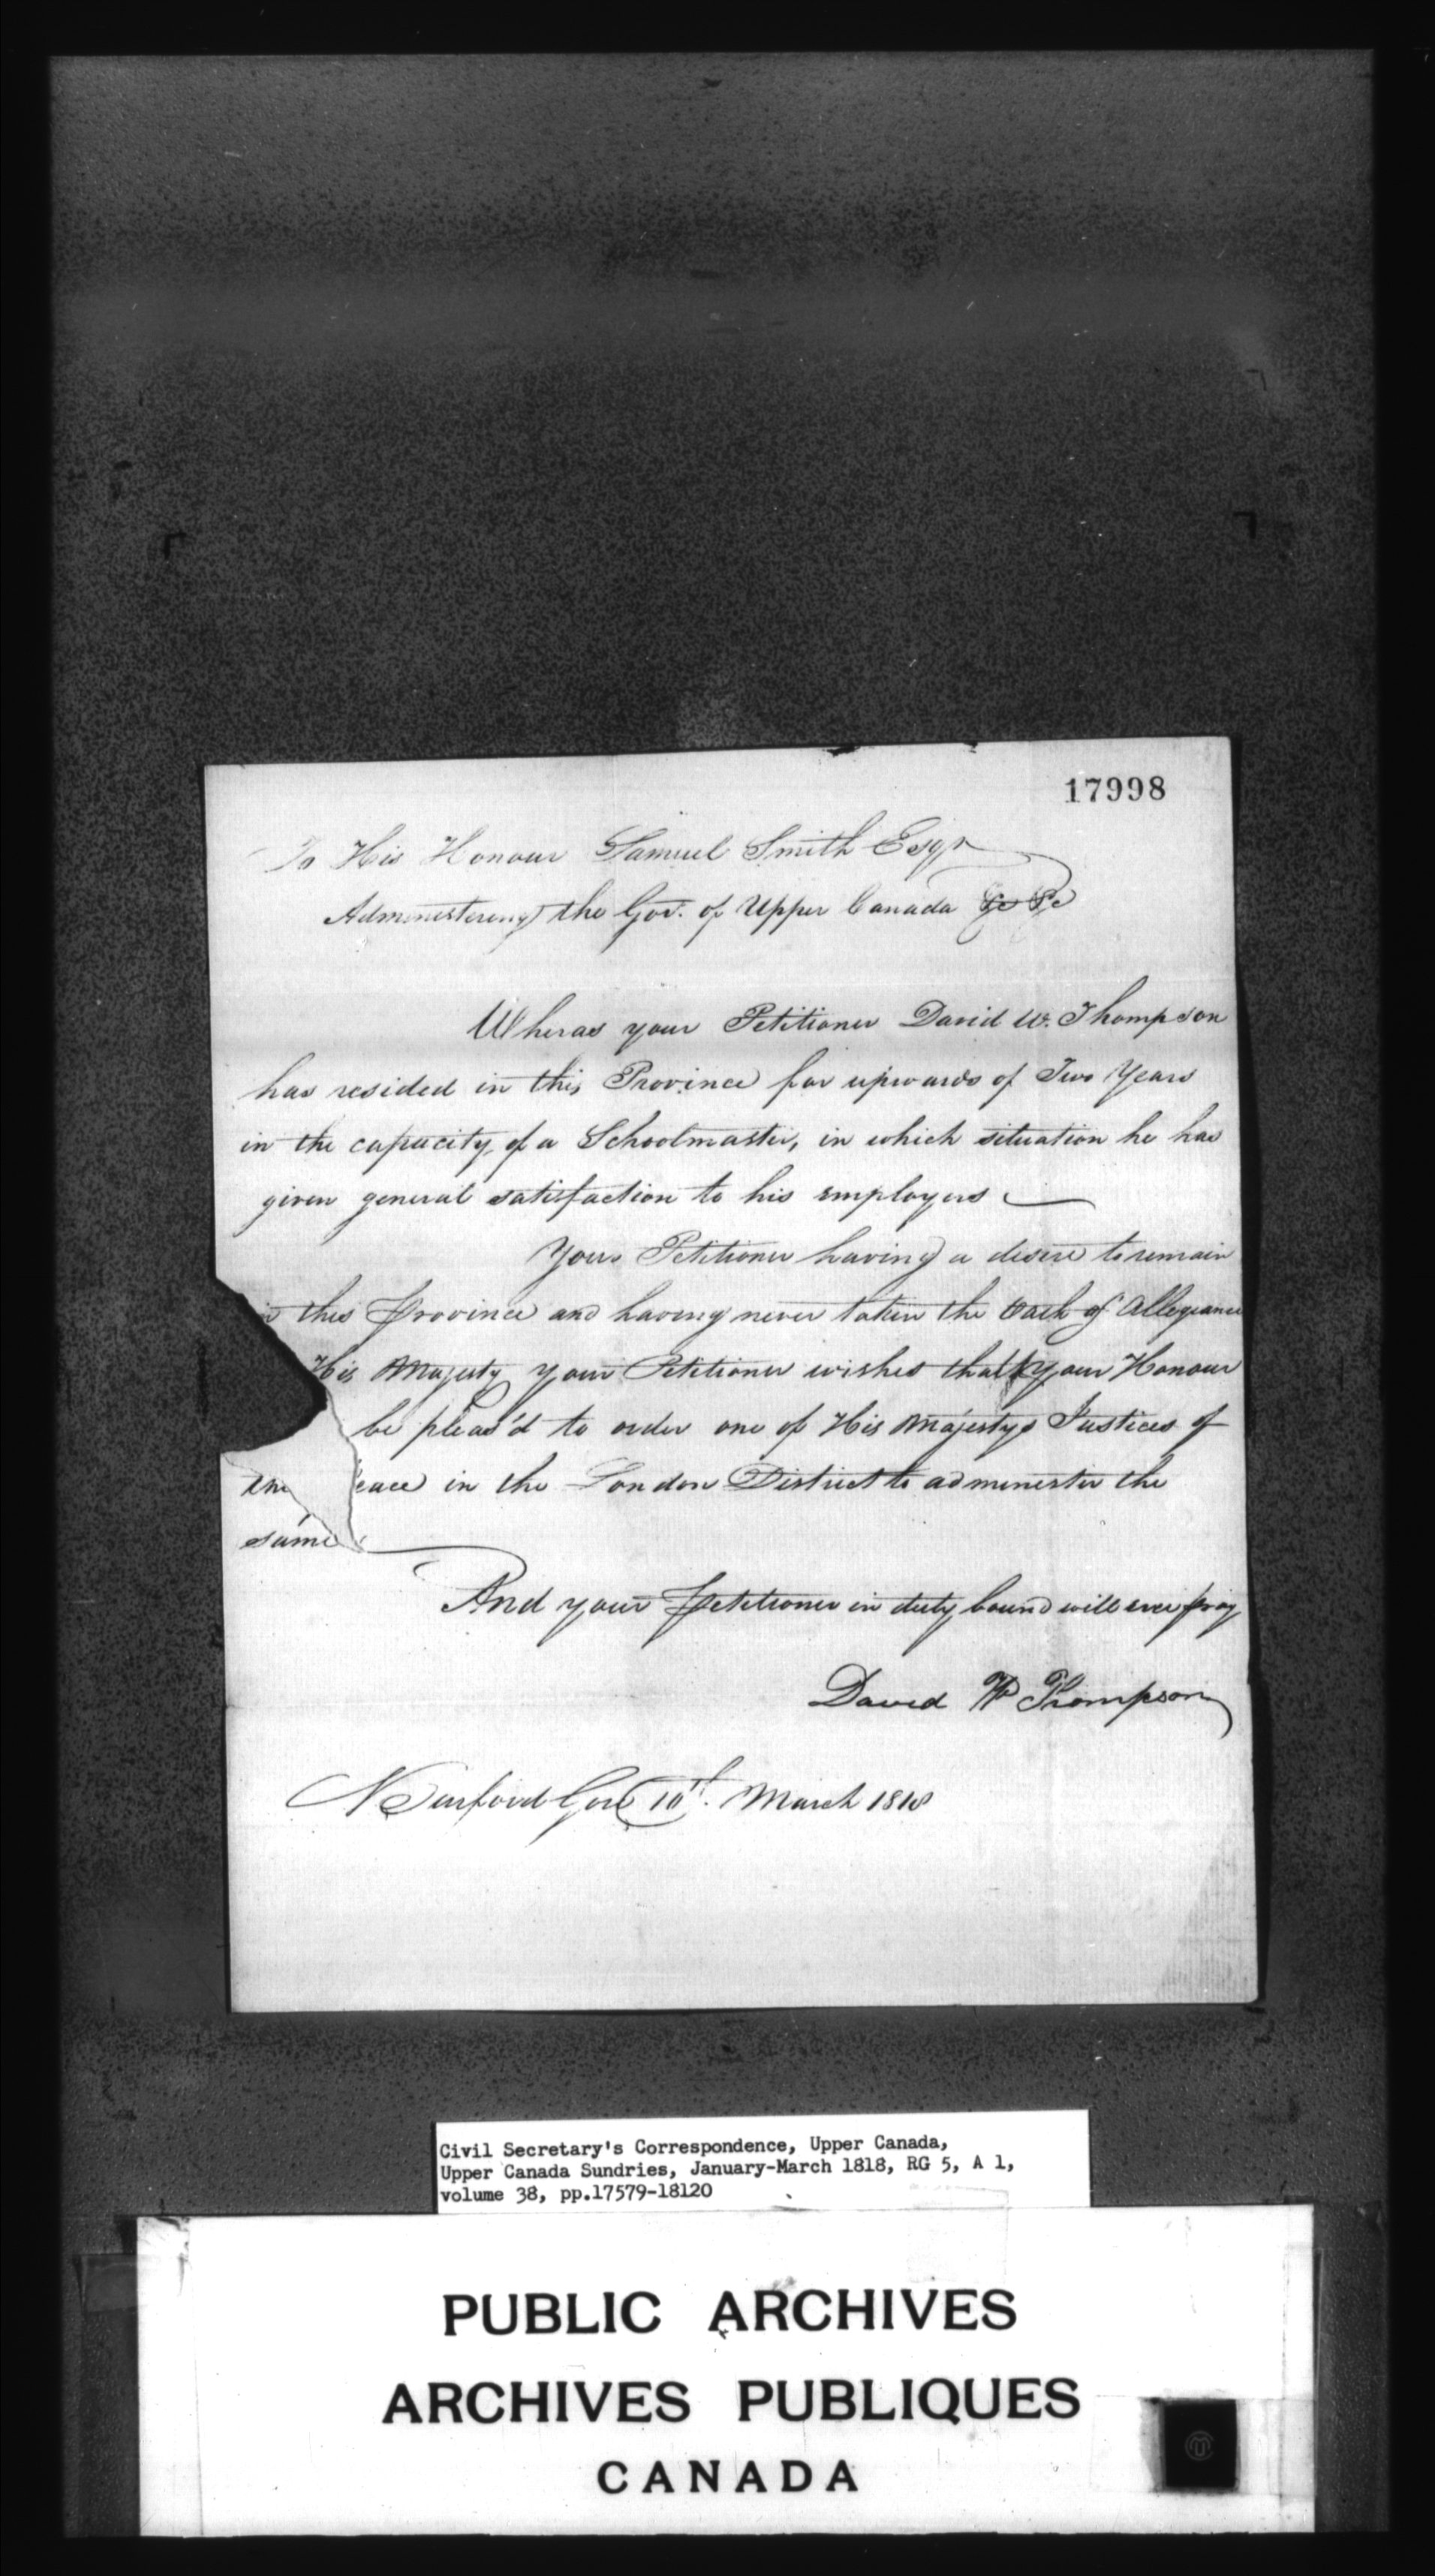 17998
To His Honour Samuel Smith Esqr
Administering the Gov.t of Upper Canada &c &c
Wheras your Petitioner David W. Thompson
has resided in this Province for upwards of Two Years
in the capacity of a Schoolmaster, in which situation he has
given general satisfaction to his employers
Your Petitioner having a desire to remain
in this Province and having never taken the Oath of Allegiance
His Majesty your Petitioner wishes that your Honour
be pleas'd to order one of His Majestys Justices of
the eace in the London District to administer the
same
And your Petitioner in duty bound will ever pray
David W Thompson
10th. March 1818
Civil Secretary's Correspondence, Upper Canada,
Upper Canada Sundries, January-March 1818, RG 5, A 1,
volume 38, pp.17579-18120
PUBLIC ARCHIVES
ARCHIVES PUBLIQUES
CANADA